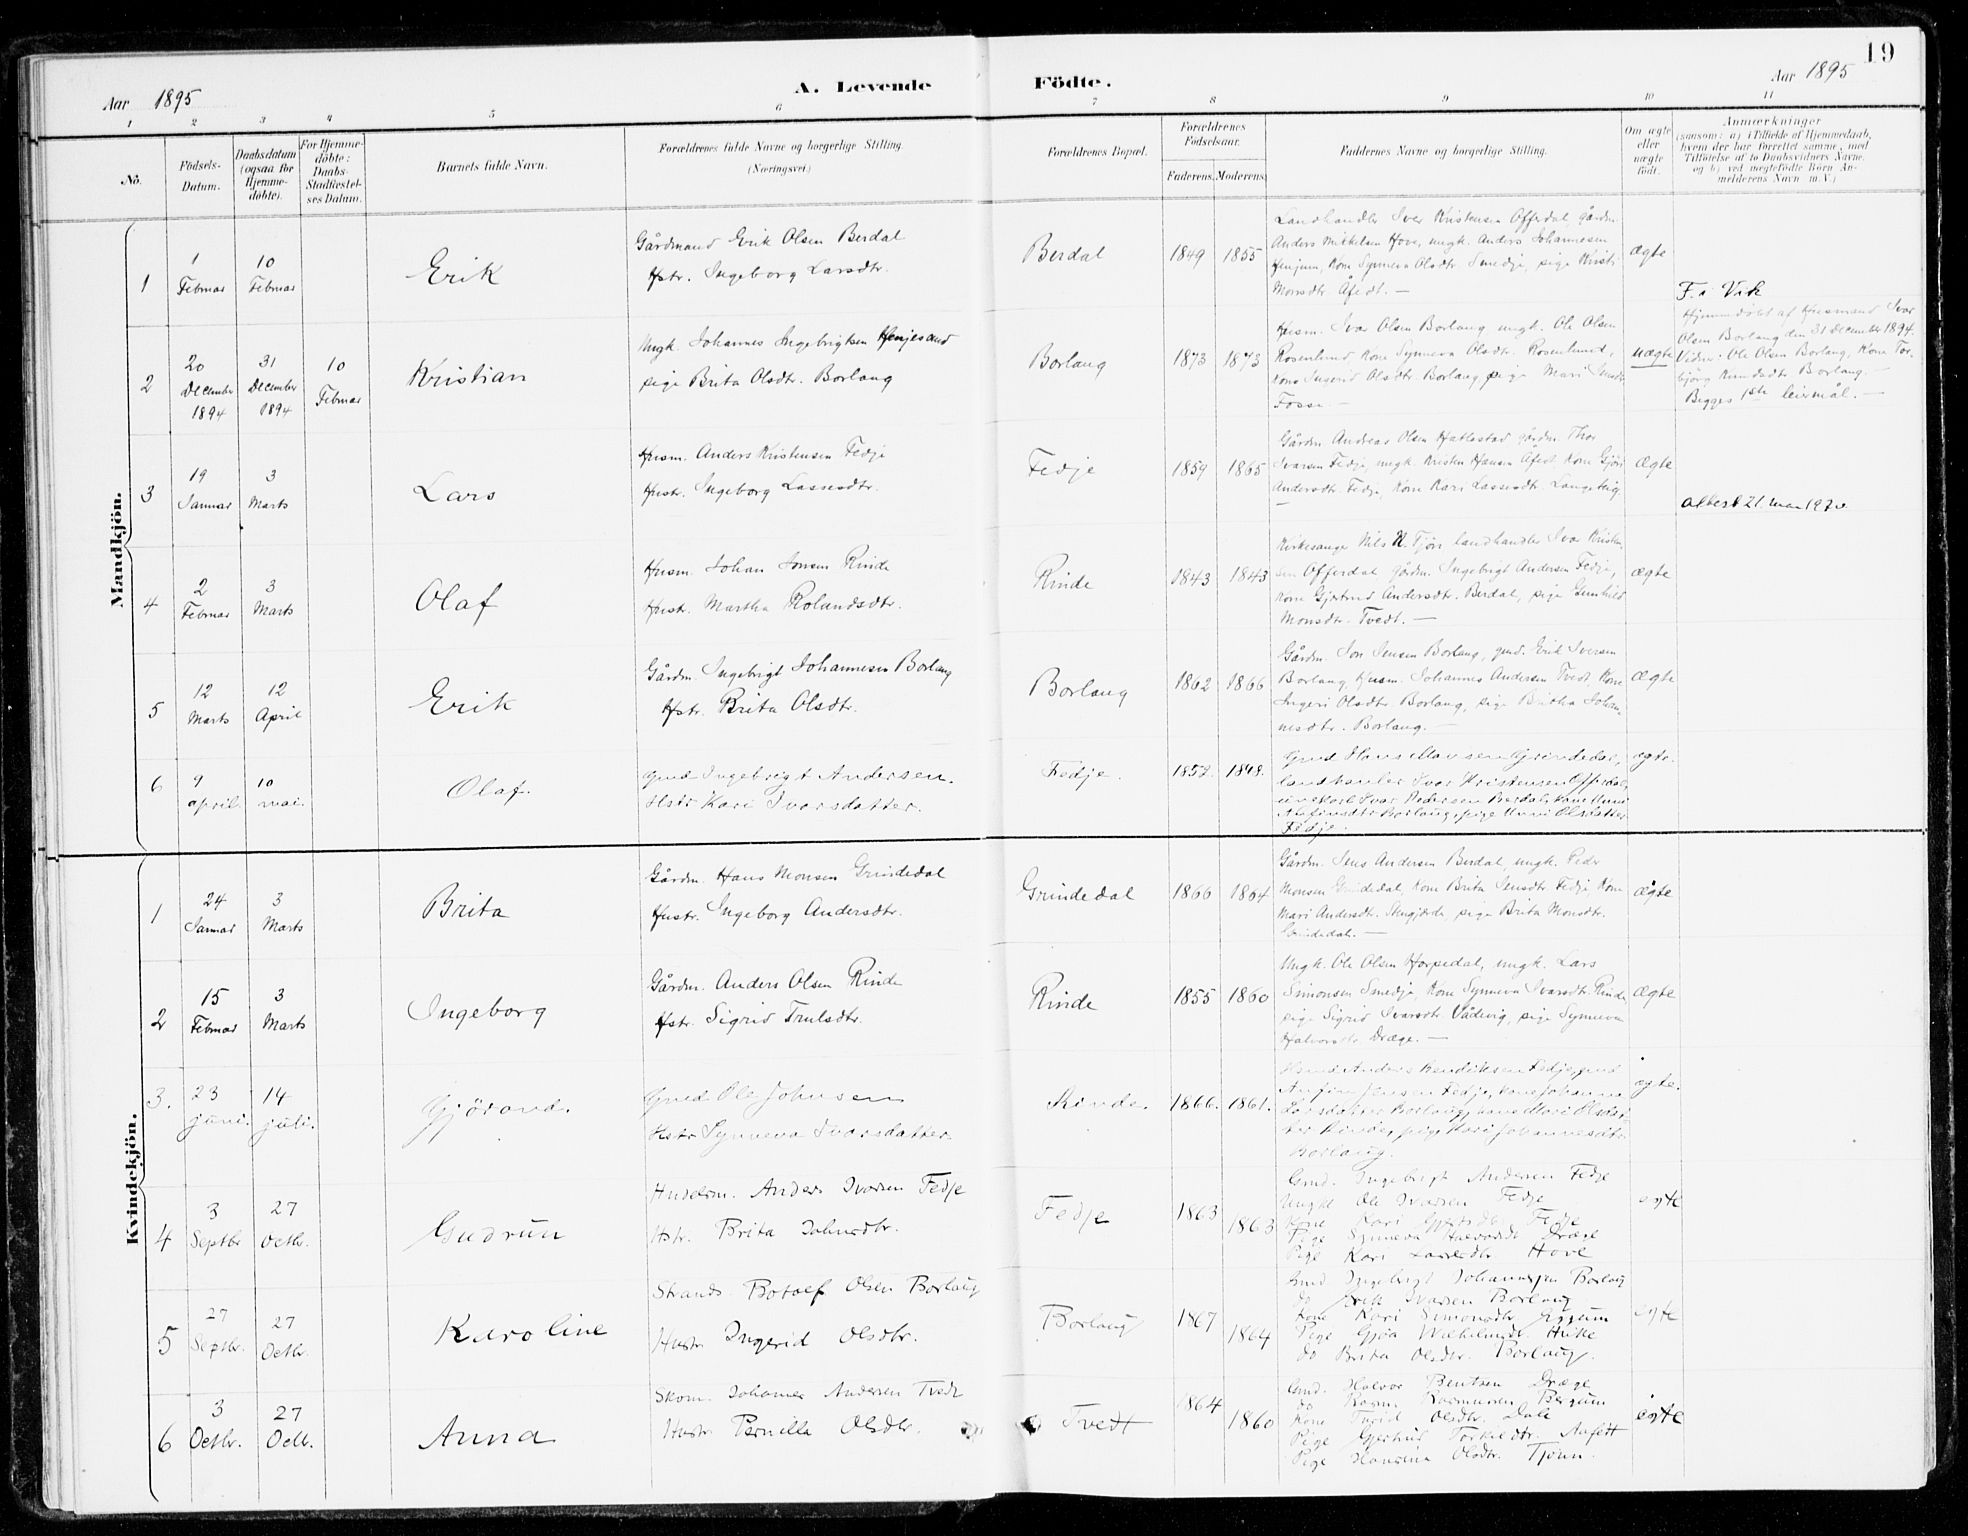 19
Aar 1895
A. Levende Födte.
Aar 1895
1 2 3 4 5 6 7 8 9 10 11
No.
Födsels-Datum.
Daabsdatum (ogsaa for Hjemme-döbte).
For Hjemme-döbte: Daabs-Stadfæstel-ses Datum.
Barnets fulde Navn.
Forældrenes fulde Navne og borgerlige Stilling.
(Næringsvei.)
Forældrenes Bopæl.
Forældrenes Födselsaar.
Faderens. Moderens.
Faddernes Navne og borgerlige Stilling.
Om ægte eller uægte födt.
Anmærkninger
(saasom: a) i Tilfælde af Hjemmedaab, hvem der har forrettet samme, med Tilföielse af to Daabsvidners Navne, og b) ved uægtefödte Börn An-melderens Navn m. V.)
Mandkjön.
1
1 Februar
10 Februar
Erik
Gårdmand Erik Olsen Berdal
Hstr. Ingeborg Larsdtr.
Berdal
1849 1855
Landhandler Iver Kristensen Offerdal gårdm.
Anders Mikkelsen Hove, ungk. Anders Johannesen
Henjum, Kone Synneva Olsdtr. Smedje, pige Kristi
Monsdtr. Åfedt. —
ægte
2
20 December 1894
31 December 1894
10 Februar
Kristian
Ungk. Johannes Ingebrigtsen Henjesand
pige Brita Olsdtr. Borlaug
Borlaug
1873 1873
Husm. Ivar Olsen Borlaug ungk. Ole Olsen
Rosenlund, Kone Synneva Olsdtr. Rosenlund,
Kone Ingerid Olsdtr. Borlaug, pige Mari
Fosse. —
uægte
F. i Vik
Hjemmedöbt af Husmand Ivar
Olsen Borlaug den 31 December 1894.
Vidner: Ole Olsen Borlaug, Kone Tor-
björg Knudsdtr. Borlaug. —
Begges 1ste leiermål. —
3
19 Januar
3 Marts
Lars
Husm. Anders Kristensen Fedje
Hustr. Ingeborg Lassesdtr.
Fedje
1859 1865
Gårdm. Andreas Olsen Hatlestad gårdm. Thor
Ivarsen Fedje, ungk. Kristen Hansen Åfedt, Kone Gjöri
Andersdtr. Fedje, Kone Kari Lassesdtr. Langeteig.
—
ægte
attest 21. mai
4
2 Februar
3 Marts
Olaf
Husm. Johan Jonsen Rinde
Hustr. Martha Rolandsdtr.
Rinde
1843 1843
Kirkesanger Nils N. Tjönn landhandler Ivar Kristen-
sen Offerdal gårdm. Ingebrigt Andersen Fedje,
Kone Gjertrud Andersdtr. Berdal, pige Gunhild
Monsdtr. Tvedt. —
ægte
5
12 Marts
12 April
Erik
Gårdm. Ingebrigt Johannesen Borlaug
Hstr. Brita Olsdtr.
Borlaug
1862 1866
Gårdm. Jon Jensen Borlaug, gmd. Erik Iversen
Borlaug, Husm. Johannes Andersen Tvedt, Kone
Ingeri Olsdtr. Borlaug, pige Britha Johan-
nesdtr. Borlaug. —
ægte
6
9 april.
10 mai.
Olaf.
Gmd Ingebrigt Andersen.
Hstr Kari Ivarsdatter.
Fedje.
1852. 1848.
Gmd Hans Monsen Grindedal,
landhanler Ivar Kristensen Offerdal,
ungkarl Ivar Pedersen Berdal, kone Unni
Anfinsdtr Borlaug, pige Unni Olsdatter
Fedje.
ægte.
Kvindekjön.
1
24 Januar
3 Marts
Brita
Gårdm. Hans Monsen Grindedal
Hustr. Ingeborg Andersdtr.
Grindedal
1866 1864
Gårdm. Jens Andersen Berdal, ungk. Peder
Monsen Grindedal, Kone Brita Jensdtr. Fedje, Kone
Mari Andersdtr. Skugjerde, pige Brita Monsdtr.
Grindedal. —
ægte
2
15 Februar
3 Marts
Ingeborg
Gårdm. Anders Olsen Rinde
Hstr. Sigrid Trulsdtr.
Rinde
1855 1860
Ungk. Ole Olsen Horpedal, ungk. Lars
Simonsen Smedje, Kone Synneva Ivarsdtr. Rinde
pige Sigrid Ivarsdtr. Vådevig, pige Synneva
Halvorsdtr. Dræge. —
ægte
3.
23 juni.
14 juli.
Gjörond.
Gmd Ole Johnsen
Hstr Synneva Ivarsdatter.
Rinde.
1866. 1861.
Husmd Anders Hendriksen Fedje, gmd
Anfin Jensen Fedje, kone Johanna
Larsdatter Borlaug, kone Mari Olsdat-
ter Rinde, pige Kari Johannesdtr.
Borlaug.
ægte.
4
3 Septbr
27 Octbr.
Gudrun
Anders Ivarsen Fedje
Hstr. Brita Johnsdtr.
Fedje
1863 1863
Gmd. Ingebrigt Andersen Fedje
Ungkl Ole Ivarsen Fedje
Kone Kari Fedje
Pige Synneva Halvorsdt Dræge
Pige Kari Lassesdtr Hove
egte
5
27 Septbr.
27 Octbr.
Karoline
Strands. Botolf Olsen Borlaug
Hustr Ingerid Olsdtr.
Borlaug
1867 1864
Gmd. Ingebrigt Johannesen Borlaug
do Erik Ivarsen Borlaug
Kone Kari Simonsdtr
Pige Gjöa
do Brita Olsdtr. Borlaug.
egte
6
3 Octbr.
27 Octb.
Anna
Skom. Johannes Andersen Tvedt
Hustr Pernilla Olsdtr.
Tvedt
1864 1860
Gmd. Halvor Bentsen Dræge
do Rasm. Rasmussen Bergum
Kone Turid Olsdtr. Dale
Pige Gjertrud Torkildtr. Aafett
Pige Hansina Olsdtr. Tjönn.
egte